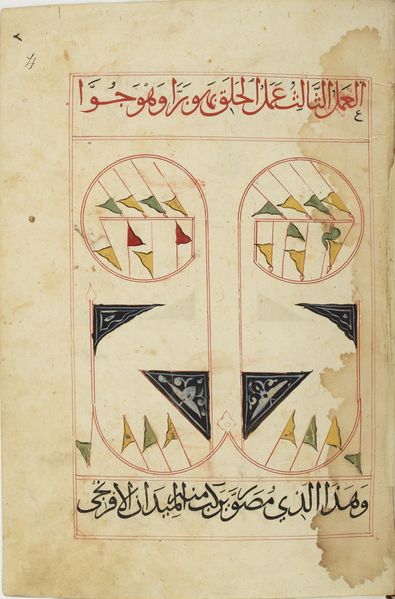 العمل الثالث عمل الحلق برّا وهو جوّا
ع
وهذا الذي مصوّر منه الميدان الافرنجي